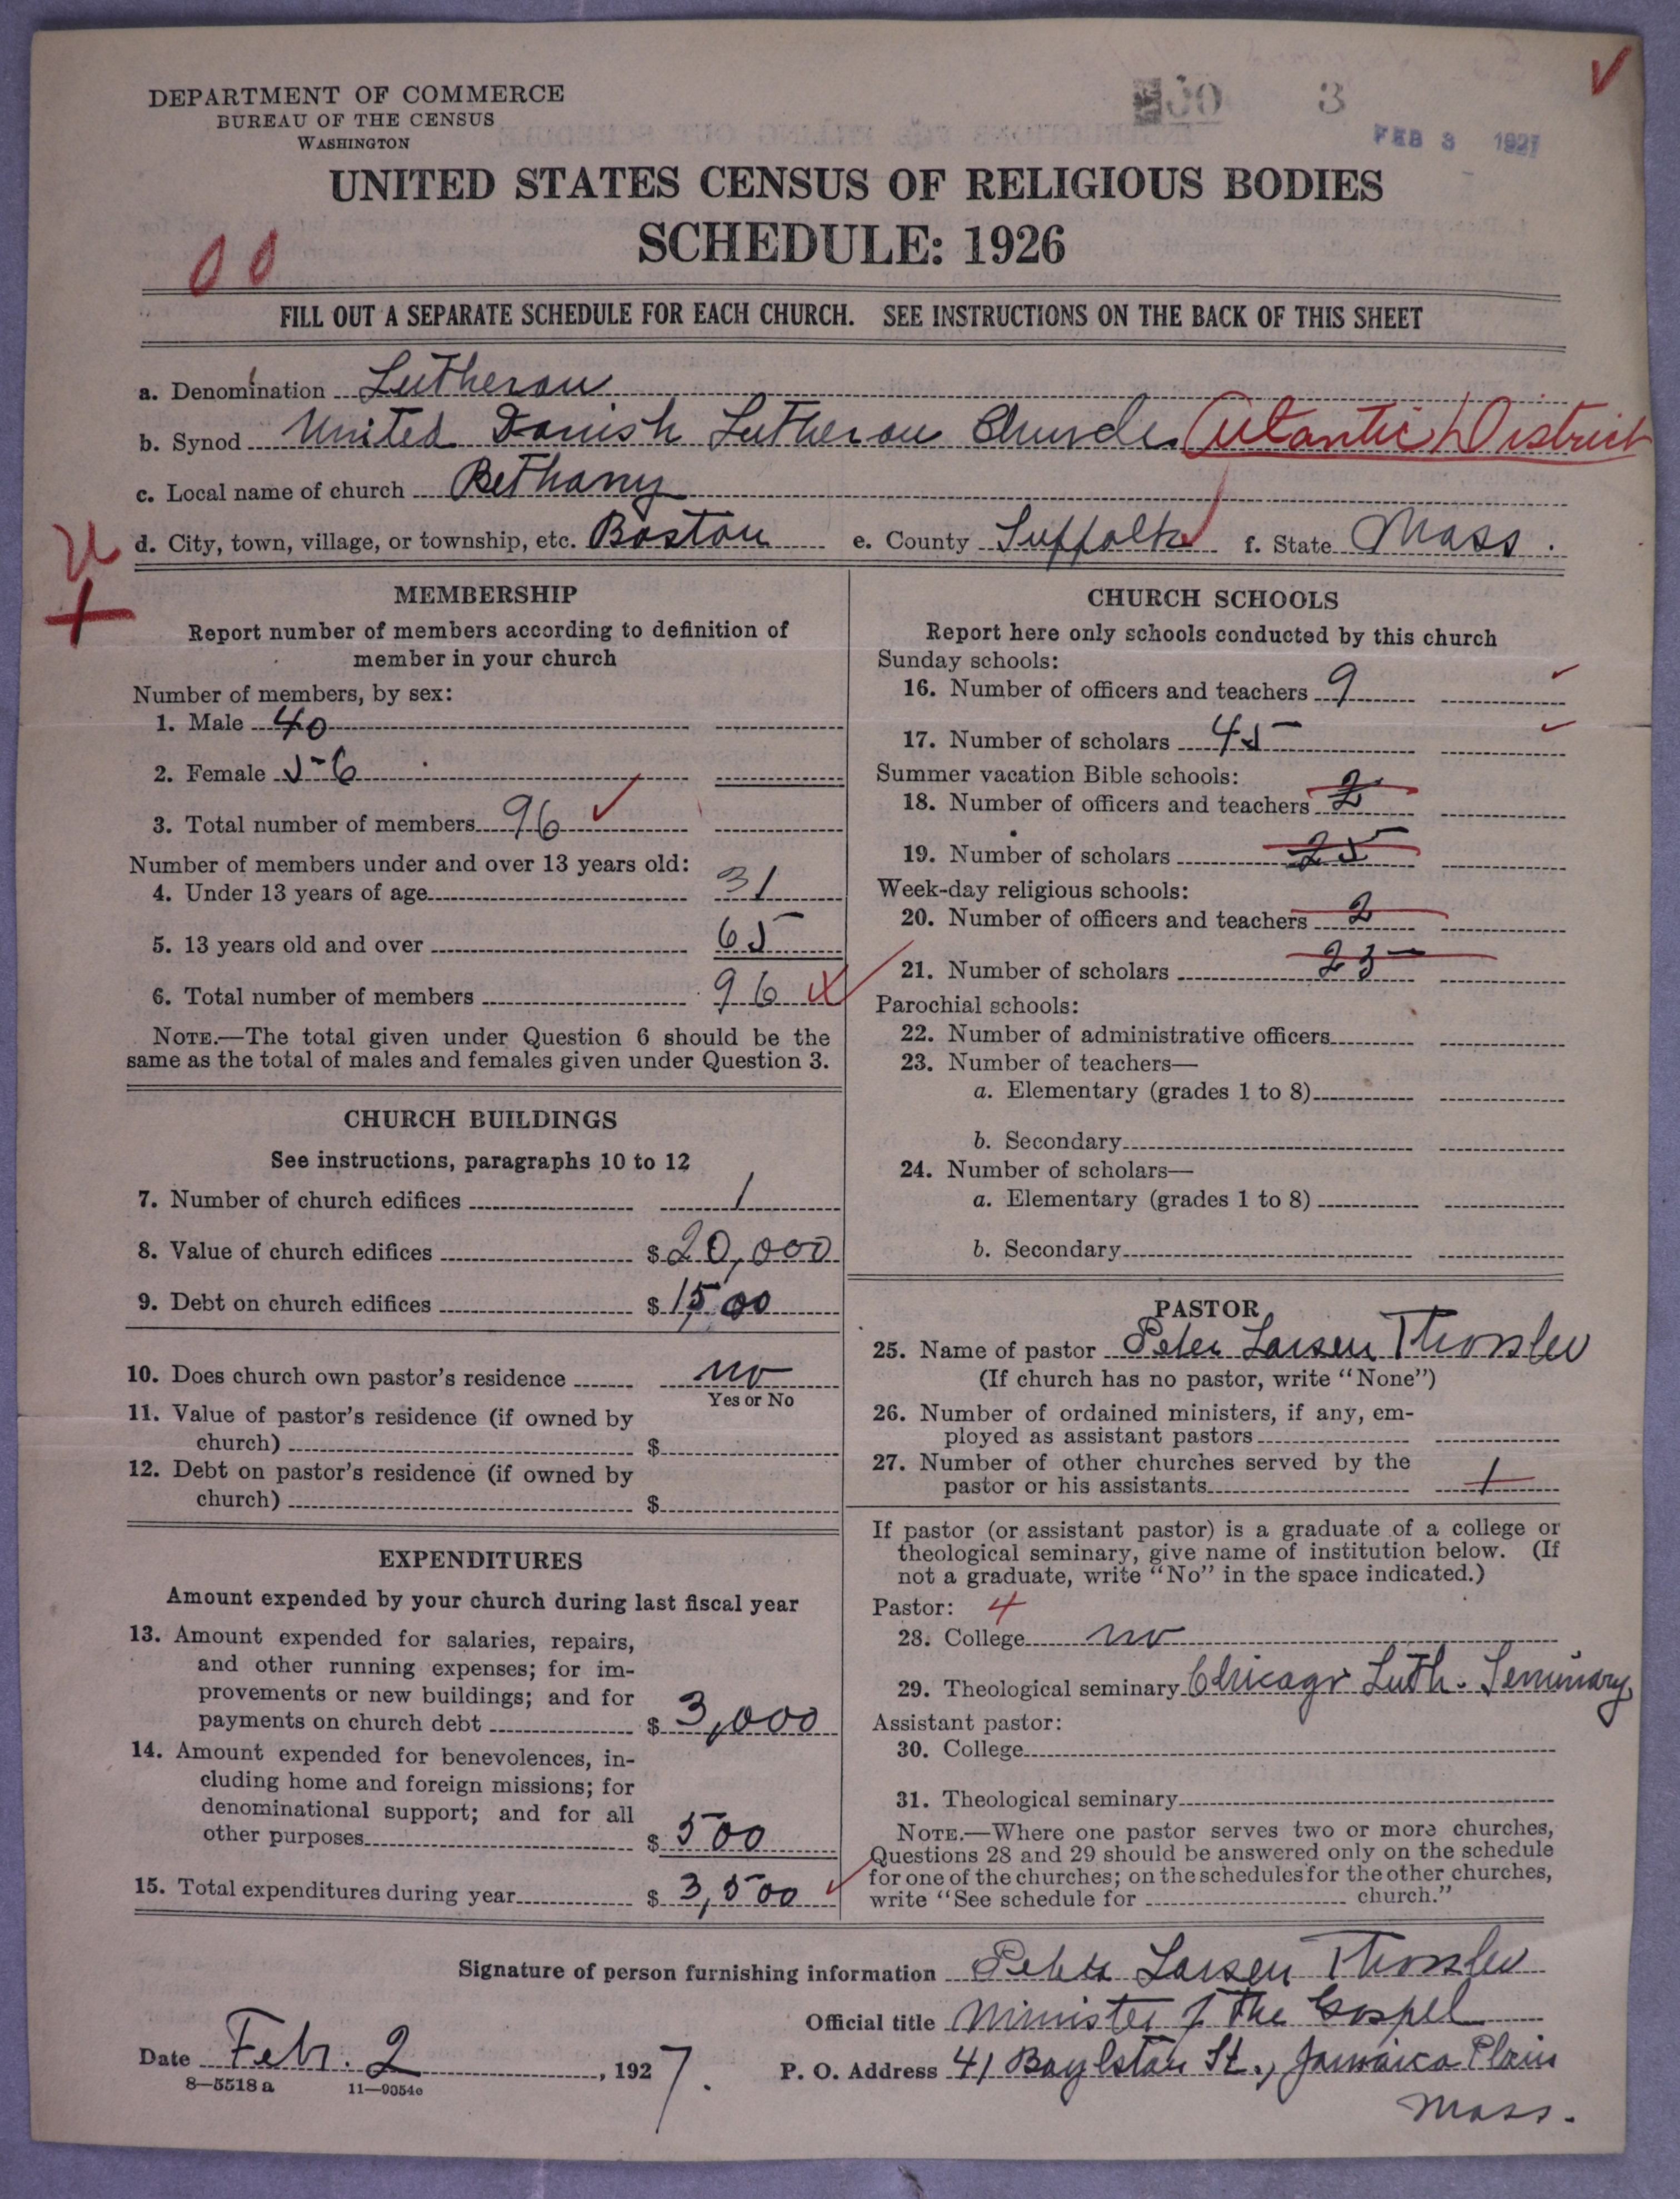 DEPARTMENT OF COMMERCE
BUREAU OF THE CENSUS
WASHINGTON
3
FEB 3 1927
UNITED STATES CENSUS OF RELIGIOUS BODIES
SCHEDULE: 1926
00
FILL OUT A SEPARATE SCHEDULE FOR EACH CHURCH. SEE INSTRUCTIONS ON THE BACK OF THIS SHEET
a. Denomination Lutheran
b. Synod United Danish Lutheran Church (Atlantic) District
c. Local name of church Bethany
d. City, town, village, or township, etc. Boston e. County Suffolk f. State Mass.
MEMBERSHIP
Report number of members according to definition of
member in your church
Number of members, by sex:
1. Male 40
2. Female 56
3. Total number of members 96
Number of members under and over 13 years old:
4. Under 13 years of age 31
5. 13 years old and over 65
6. Total number of members 96
NOTE.—The total given under Question 6 should be the
same as the total of males and females given under Question 3.
CHURCH BUILDINGS
See instructions, paragraphs 10 to 12
7. Number of church edifices 1
8. Value of church edifices $20,000
9. Debt on church edifices $1,500
10. Does church own pastor's residence no
Yes or No
11. Value of pastor's residence (if owned by
church) $
12. Debt on pastor's residence (if owned by
church) $
EXPENDITURES
Amount expended by your church during last fiscal year
13. Amount expended for salaries, repairs,
and other running expenses; for im-
provements or new buildings; and for
payments on church debt $3,000
14. Amount expended for benevolences, in-
cluding home and foreign missions; for
denominational support; and for all
other purposes $500
15. Total expenditures during year $3,500
CHURCH SCHOOLS
Report here only schools conducted by this church
Sunday schools:
16. Number of officers and teachers 9
17. Number of scholars 45
Summer vacation Bible schools:
18. Number of officers and teachers 2
19. Number of scholars 25
Week-day religious schools:
20. Number of officers and teachers 2
21. Number of scholars 23
Parochial schools:
22. Number of administrative officers
23. Number of teachers—
a. Elementary (grades 1 to 8)
b. Secondary
24. Number of scholars—
a. Elementary (grades 1 to 8)
b. Secondary
PASTOR
25. Name of pastor Peter Larsen Thorslev
(If church has no pastor, write "None")
26. Number of ordained ministers, if any, em-
ployed as assistant pastors
27. Number of other churches served by the
pastor or his assistants 1
If pastor (or assistant pastor) is a graduate of a college or
theological seminary, give name of institution below. (If
not a graduate, write "No" in the space indicated.)
Pastor: 4
28. College no
29. Theological seminary Chicago Luth. Seminary,
Assistant pastor:
30. College
31. Theological seminary
NOTE.—Where one pastor serves two or more churches,
Questions 28 and 29 should be answered only on the schedule
for one of the churches; on the schedules for the other churches,
write "See schedule for church."
Signature of person furnishing information Peter Larsen Thorslev
Official title Minister of the Gospel
Date Febr. 2, 1927.
P. O. Address 41 Boylston St., Jamaica Plain
Mass.
8—5518 a 11—9054c